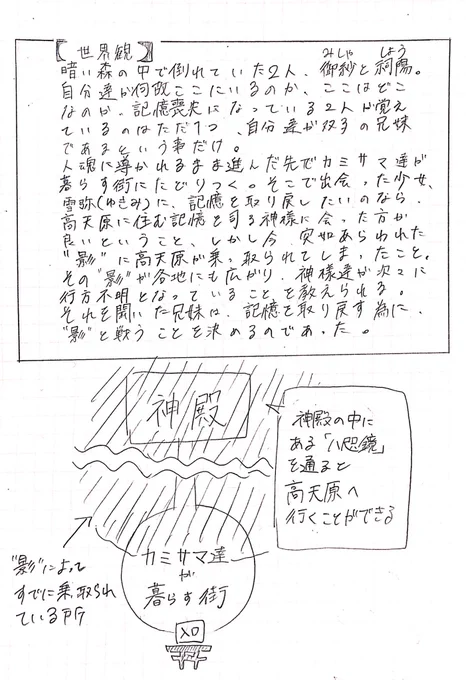 【世界観】
暗い森の中で倒れていた2人、御紗(みしゃ)と祠陽(しよう)。
自分達が何故ここにいるのか、ここはどこ
なのか、記憶喪失になっている2人が覚え
ているのはただ1つ、自分達が双子の兄妹
であるという事だけ。
人魂に導かれるまま進んだ先でカミサマ達が
暮らす街にたどりつく。そこで出会った少女、
雪弥(ゆきみ)に、記憶を取り戻したいのなら、
高天原に住む記憶を司る神様に会った方が
良いということ、しかし今、突如あらわれた
"影"に高天原が乗っ取られてしまったこと。
その"影"が各地にも広がり、神様達が次々に
行方不明となっていることを教えられる。
それを聞いた兄妹は、記憶を取り戻す為に、
"影"と戦うことを決めるのであった。
神殿
神殿の中に
ある「八咫鏡」
を通ると
高天原へ
行くことができる
カミサマ達
が
暮らす街
入口
"影"によって
すでに乗っ取られ
ている所